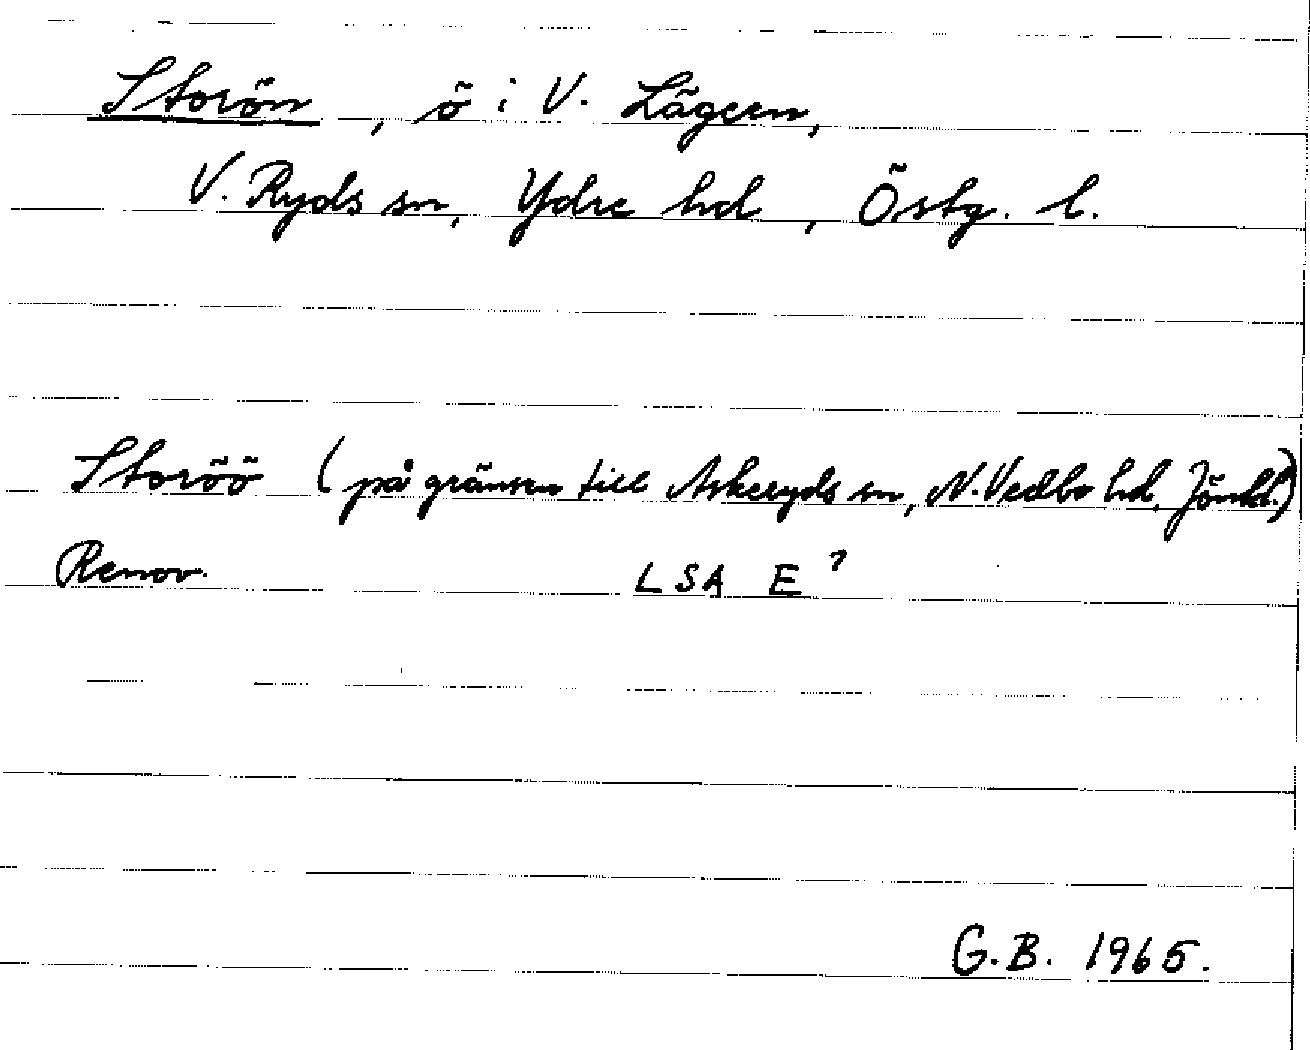 Storön, ö i V. Lägern,
V. Ryds sn, Ydre hd, Östg. l.
Storöö (på gränsen till Askeryds sn, N. Vedbo hd, Jönkl.)
Renov. LSA E 7
G.B. 1965.